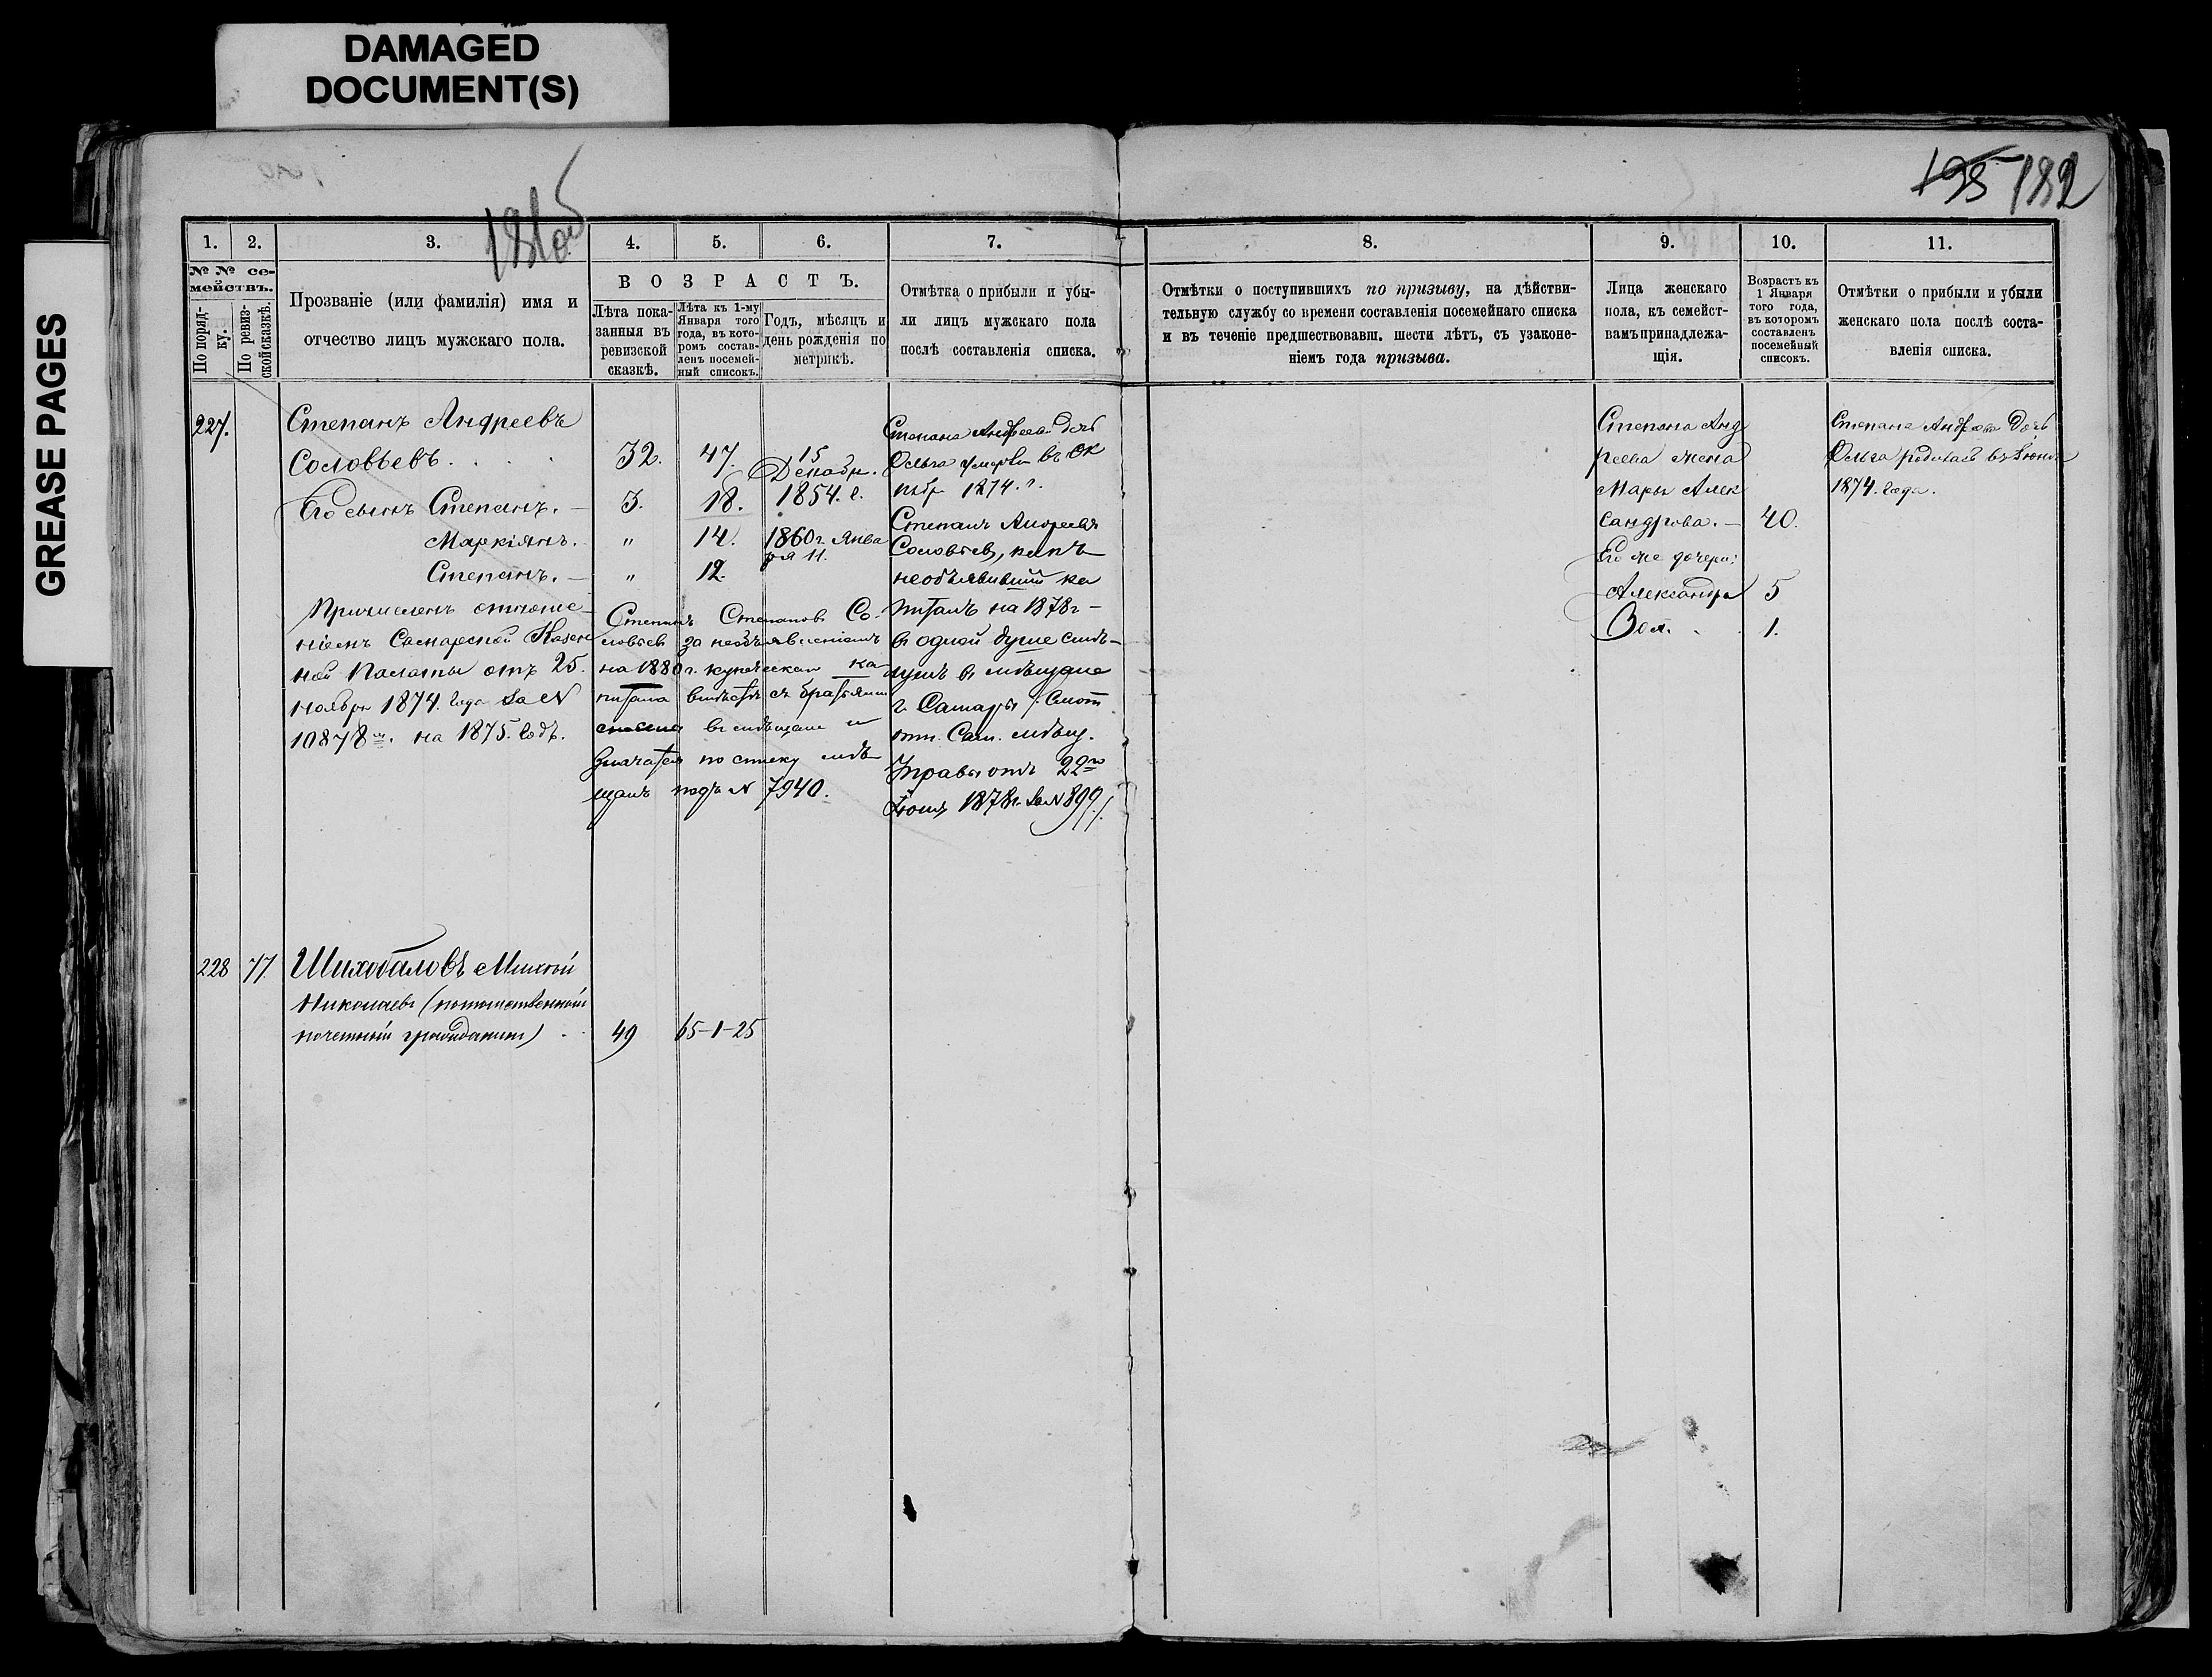 DAMAGED
DOCUMENT(S)
GREASE PAGES
181об
195 182
1.
2.
3.
4.
5.
6.
7.
8.
9.
10.
11.
№ № се-
мействъ.
По поряд-
ку.
По ревиз-
ской сказкѣ.
Прозваніе (или фамилія) имя и
отчество лицъ мужскаго пола.
ВОЗРАСТЪ.
Лѣта пока-
занныя въ
ревизской
сказкѣ.
Лѣта къ 1-му
Января того
года, въ кото-
ромъ состав-
ленъ посемей-
ный списокъ.
Годъ, мѣсяцъ и
день рожденія по
метрикѣ.
Отмѣтка о прибыли и убы-
ли лицъ мужскаго пола
послѣ составленія списка.
Отмѣтки о поступившихъ по призыву, на дѣйстви-
тельную службу со времени составленія посемейнаго списка
и въ теченіе предшествовавш. шести лѣтъ, съ узаконе-
ніемъ года призыва.
Лица женскаго
пола, къ семейст-
вамъ принадлежа-
щія.
Возрастъ къ
1 Января
того года,
въ которомъ
составленъ
посемейный
списокъ.
Отмѣтки о прибыли и убыли
женскаго пола послѣ соста-
вленія списка.
227.
Степанъ Андреевъ
Соловьевъ. . . .
Его сынъ Степанъ. —
Маркіянъ. —
Степанъ. —
Причисленъ отноше-
ніемъ Самарской Казен
ной Палаты отъ 25.
ноября 1874. года за N
10878м. на 1875. годъ.
32.
3.
"
"
47.
18.
14.
12.
15
Декабр.
1854. г.
1860 г. Янва
ря 11.
Степанъ Степановъ Со-
ловьев за необъявленіемъ
на 1880 г. купеческаго ка-
питала вмѣстѣ съ братьями
въ мѣщане и
значатся по списку мѣ-
щанъ подъ N 7940.
Степана Андреева дочь
Ольга умерла въ Ок
тябр 1874. г.
Степанъ Андреевъ
Соловьев, какъ
необъявившій ка
питалъ на 1878 г —
в одной душе
в мѣщане
г. Самары /: Смот
отн. Сам. мѣщ.
Управы отъ 22го
Іюня 1878 г. за N 899 /.
Степана Анд
реева жена
Марья Алек
сандрова. —
Его же дочери:
Александра
Зоя. . .
40.
5
1.
Степана Андреева дочь
Ольга родилась въ Іюнѣ
1874. года.
228
77
Шихобаловъ Михей
Николаевъ (потомственный
почетный гражданинъ) . .
49
65-1-25